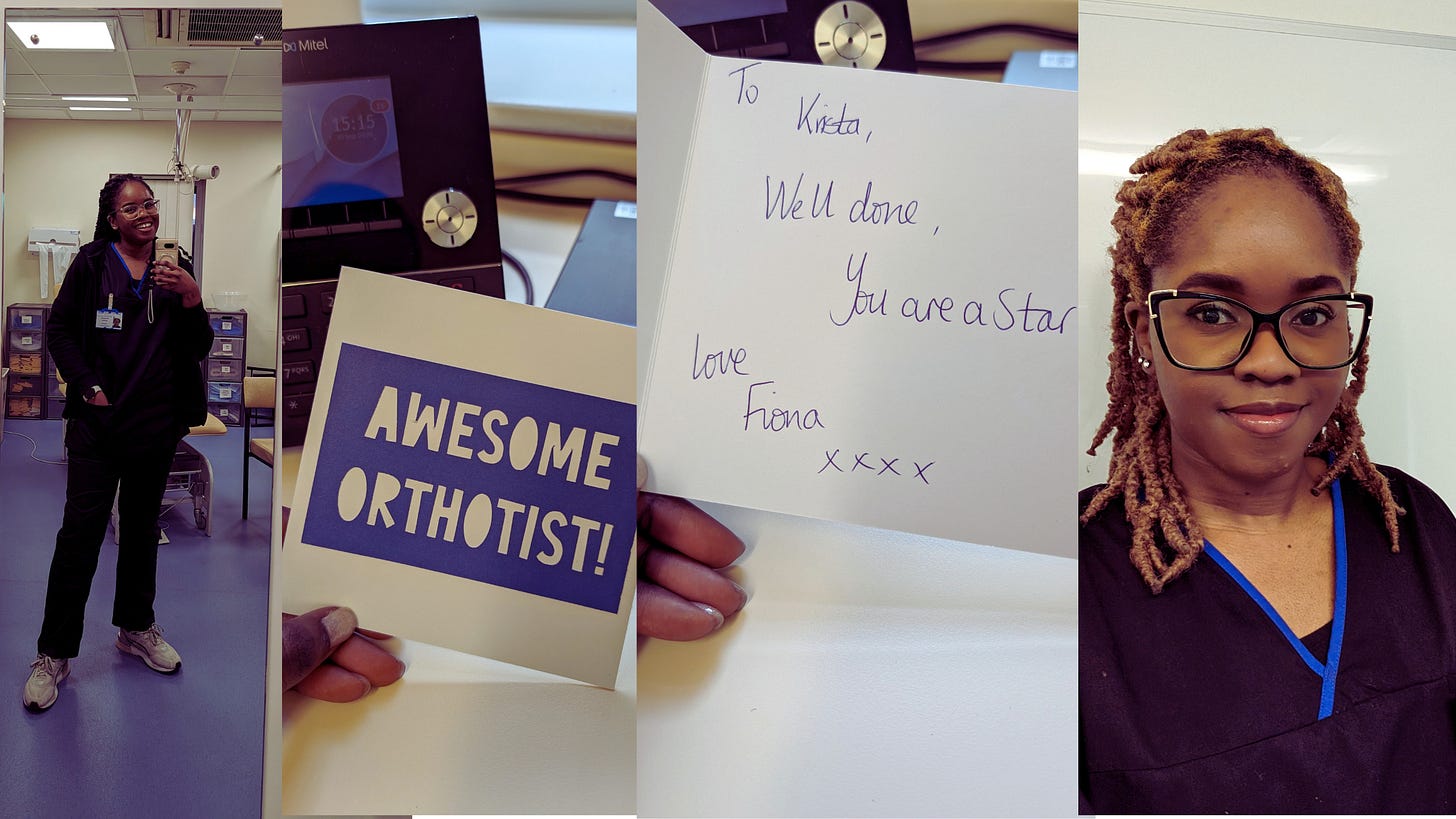 Mitel
15:15
AWESOME
ORTHOTIST!
To
Krista,
Well done,
You are a Star
love
Fiona
xxxx